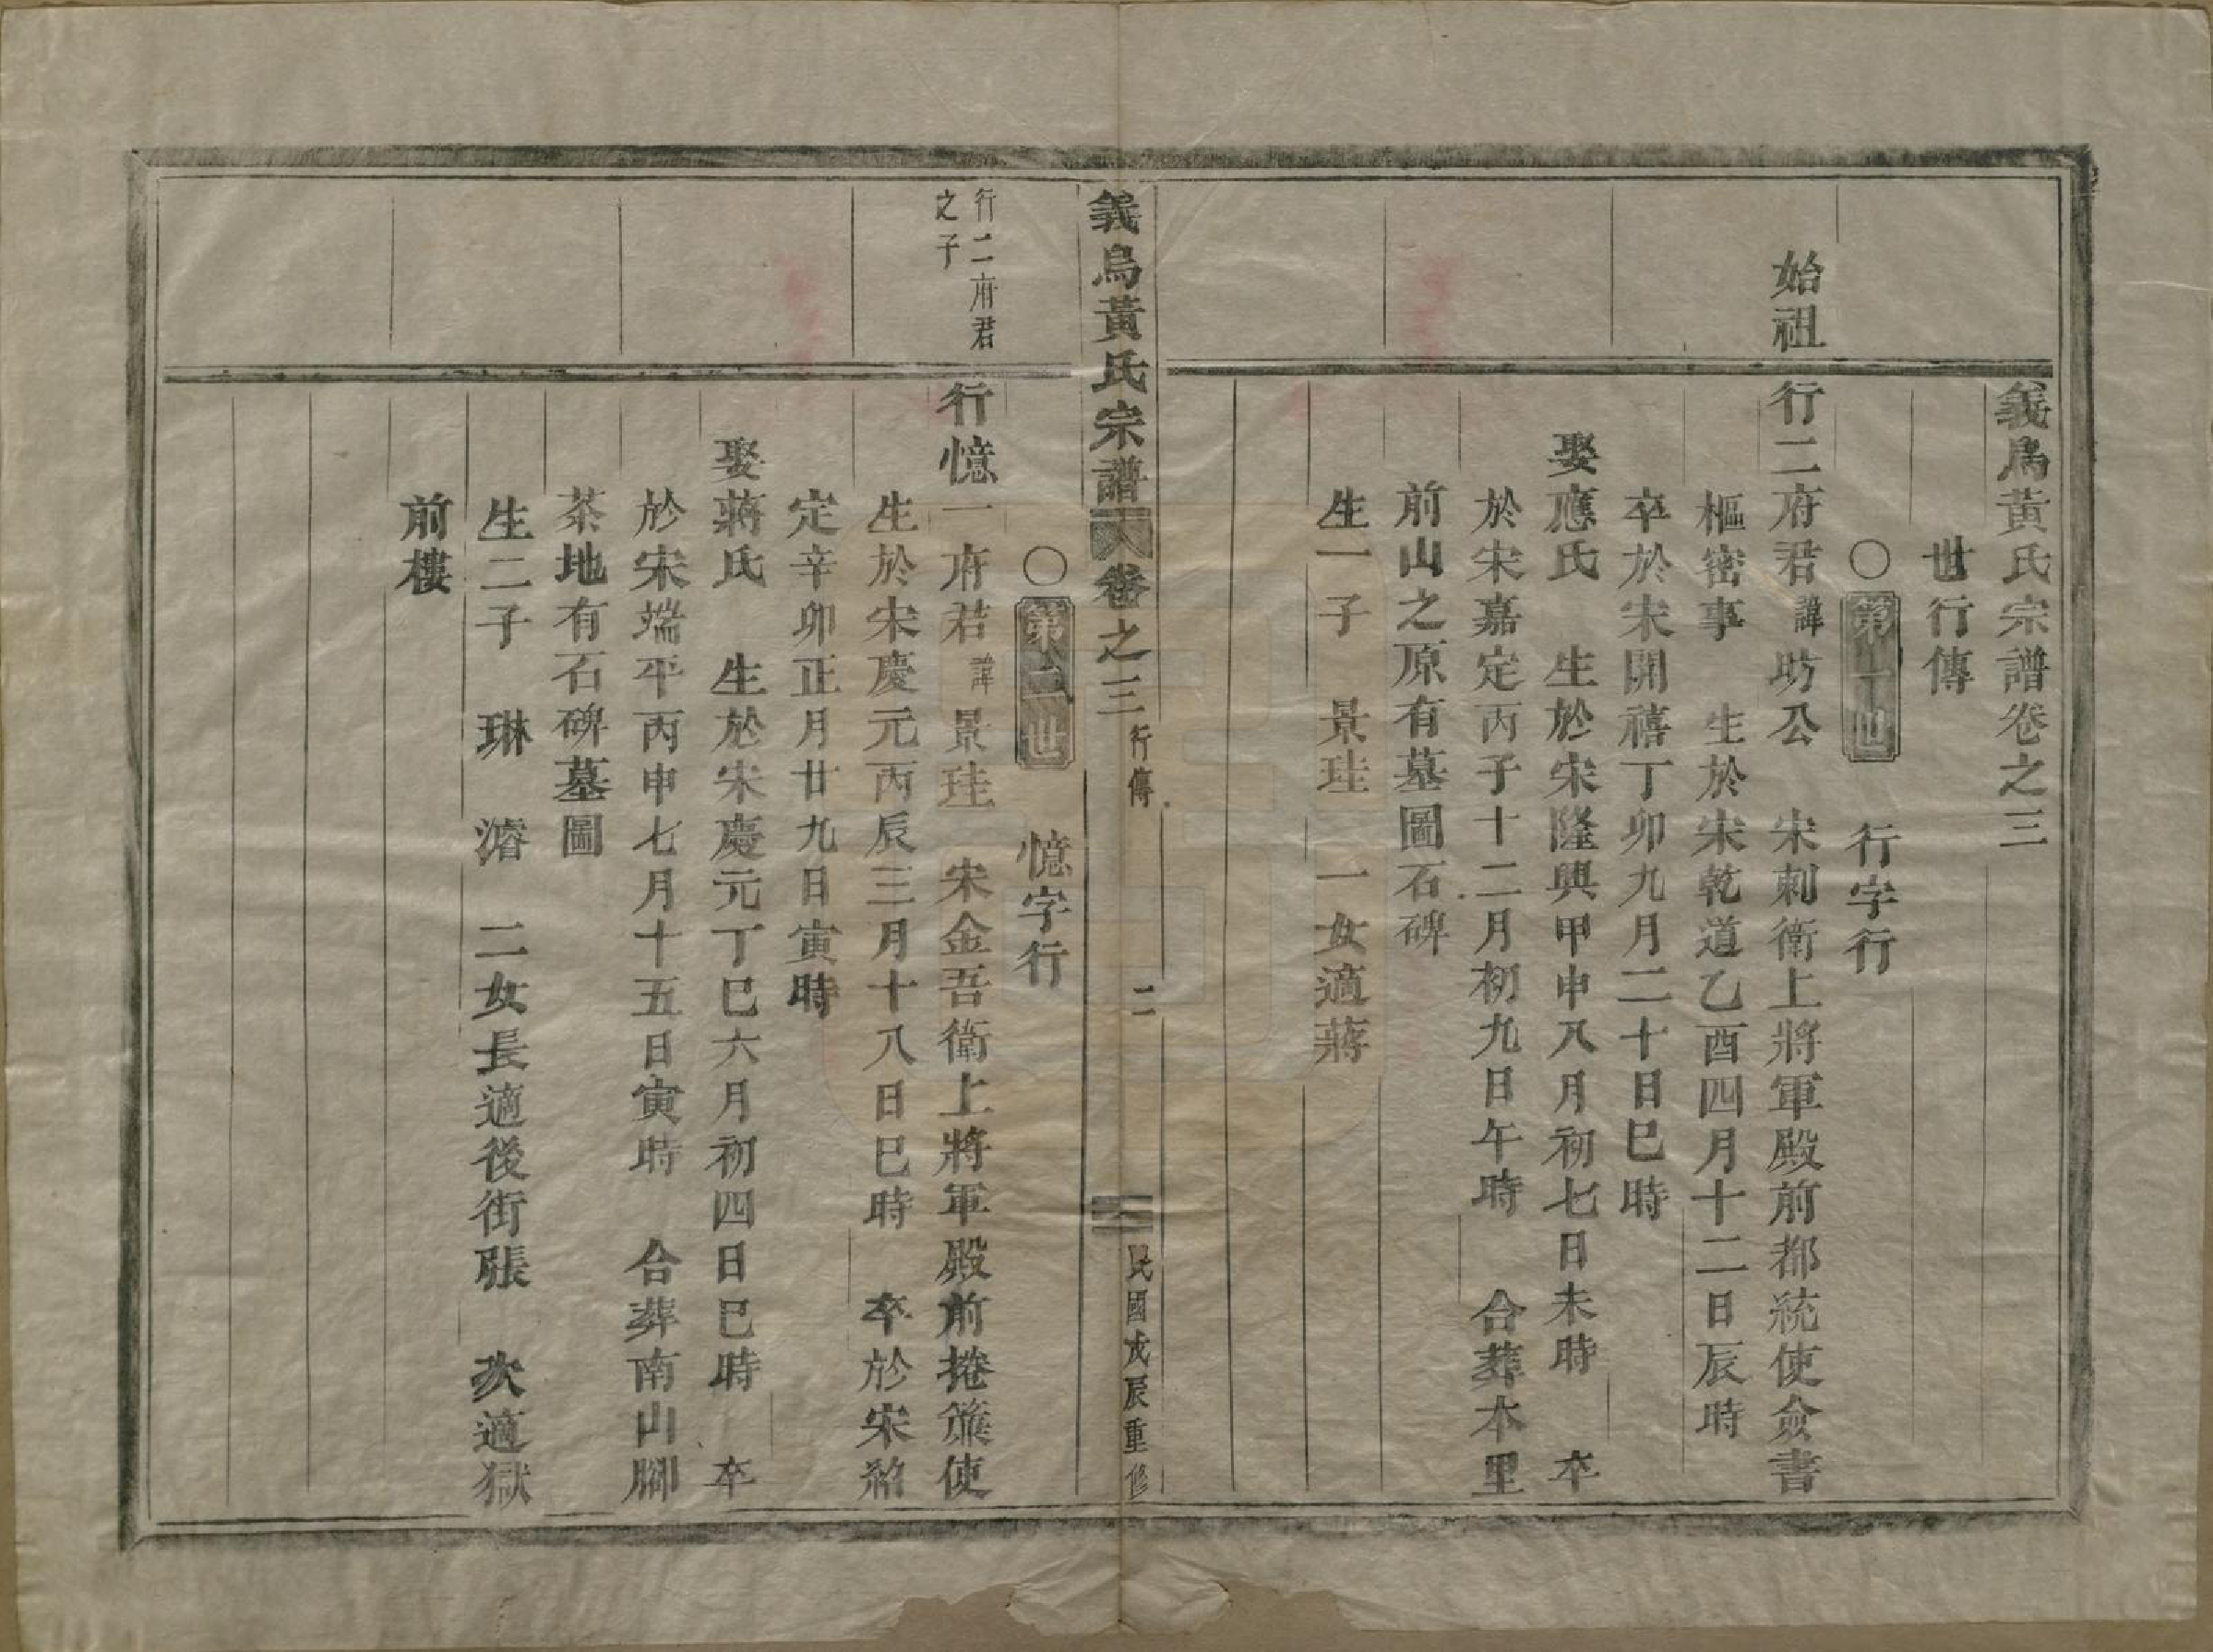 義烏黃氏宗譜卷之三
世行傳
○第一世 行字行
始祖
行二府君諱昉公 宋刺衛上將軍殿前都統使僉書
樞密事 生於宋乾道乙酉四月十二日辰時
卒於宋開禧丁卯九月二十日巳時
娶應氏 生於宋隆興甲申八月初七日未時 卒
於宋嘉定丙子十二月初九日午時 合葬本里
前山之原有墓圖石碑
生一子 景珪 一女適蔣
義烏黃氏宗譜 卷之三 行傳 二 民國戊辰重修
○第二世 憶字行
行二府君
之子
行憶一府君諱景珪 宋金吾衛上將軍殿前捲簾使
生於宋慶元丙辰三月十八日巳時 卒於宋紹
定辛卯正月廿九日寅時
娶蔣氏 生於宋慶元丁巳六月初四日巳時 卒
於宋端平丙申七月十五日寅時 合葬南山腳
茶地有石碑墓圖
生二子 琳 濬 二女長適後街張 次適獄
前樓